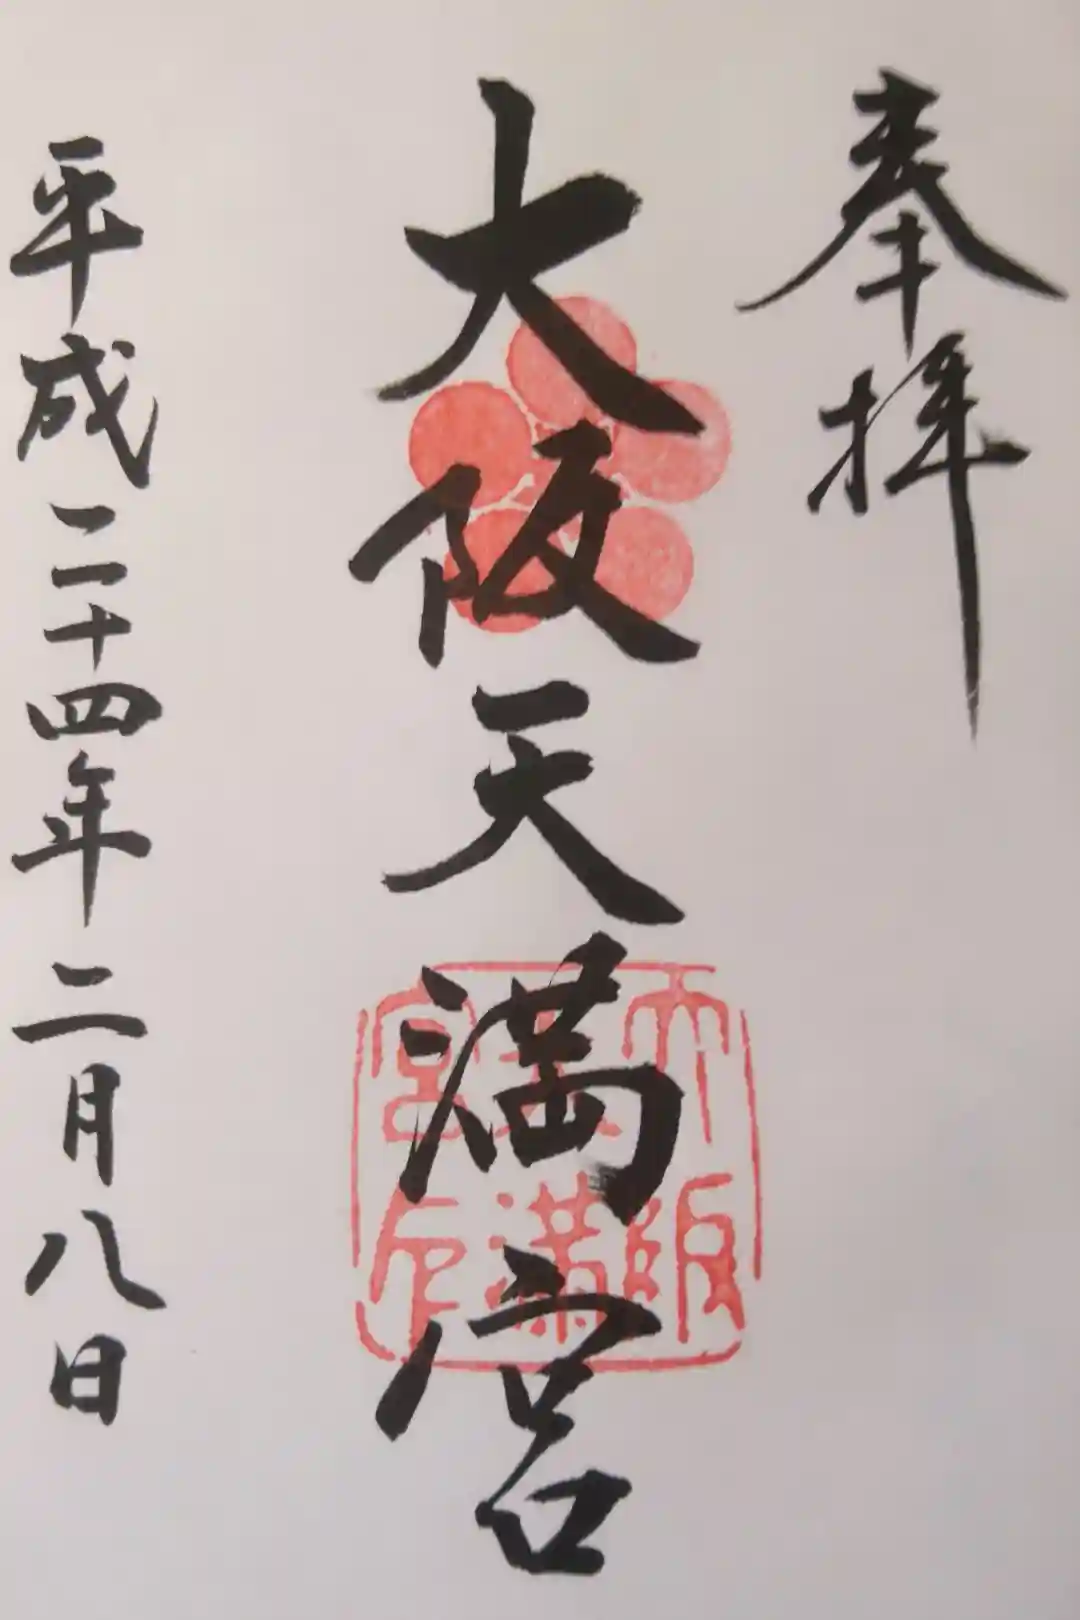 奉拝
大阪天満宮
平成二十四年二月八日
大阪天満宮印